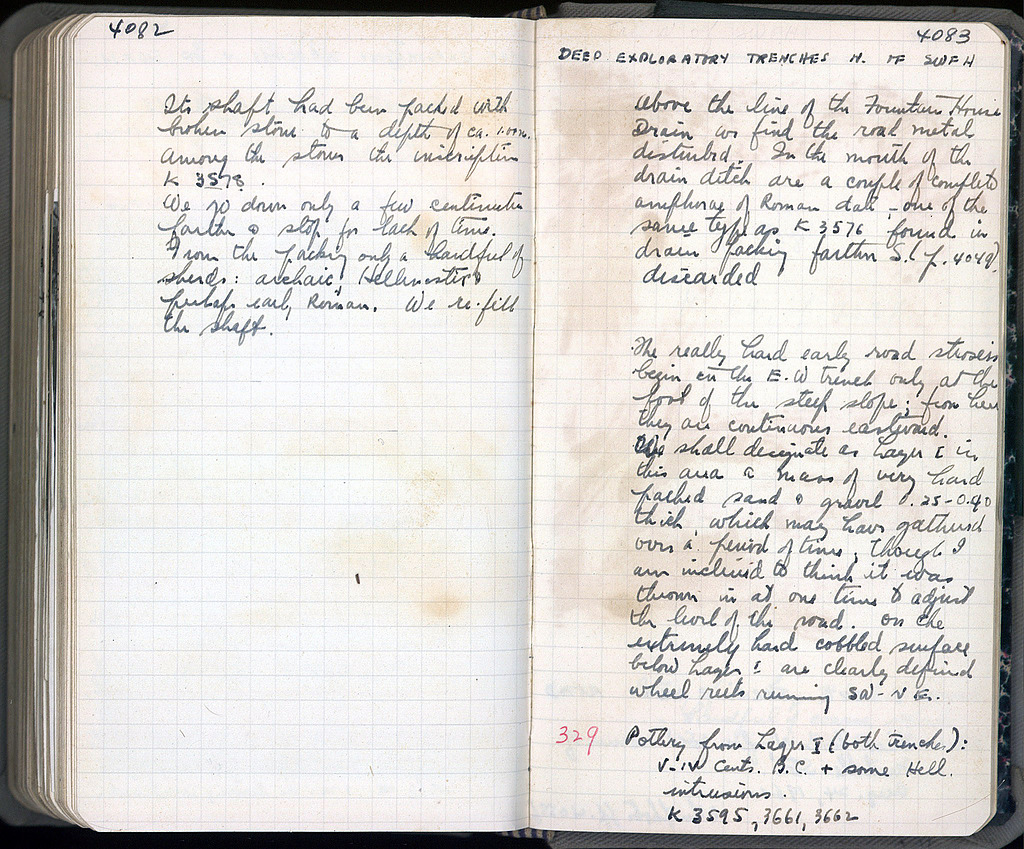 4082
Its shaft had been packed with
broken stone to a depth of ca. 1.00m.
Among the stones the inscription
K 3578.
We go down only a few centimeters
farther & stop for lack of time.
From the packing only a handful of
sherds: archaic, Hellenistic &
perhaps early Roman. We re-fill
the shaft.
4083
DEEP EXPLORATORY TRENCHES N. OF SWFH
above the line of the Fountain House
Drain we find the road metal
disturbed. In the mouth of the
drain ditch are a couple of complete
amphorae of Roman date, one of the
same type as K 3576 found in
drain packing farther S. (p. 4049).
discarded
The really hard early road strosis
begin in the E.W trench only at the
foot of the steep slope; from here
they are continuous eastward.
We shall designate as Layer I in
this area a mass of very hard
packed sand & gravel 0.25-0.40
thick, which may have gathered
over a period of time, though I
am inclined to think it was
thrown in at one time to adjust
the level of the road. On the
extremely hard cobbled surface
below Layer I are clearly defined
wheel ruts running SW-NE.
329 Pottery from Layer I (both trenches):
V-IV Cents. B.C. + some Hell.
intrusions.
K 3595, 3661, 3662